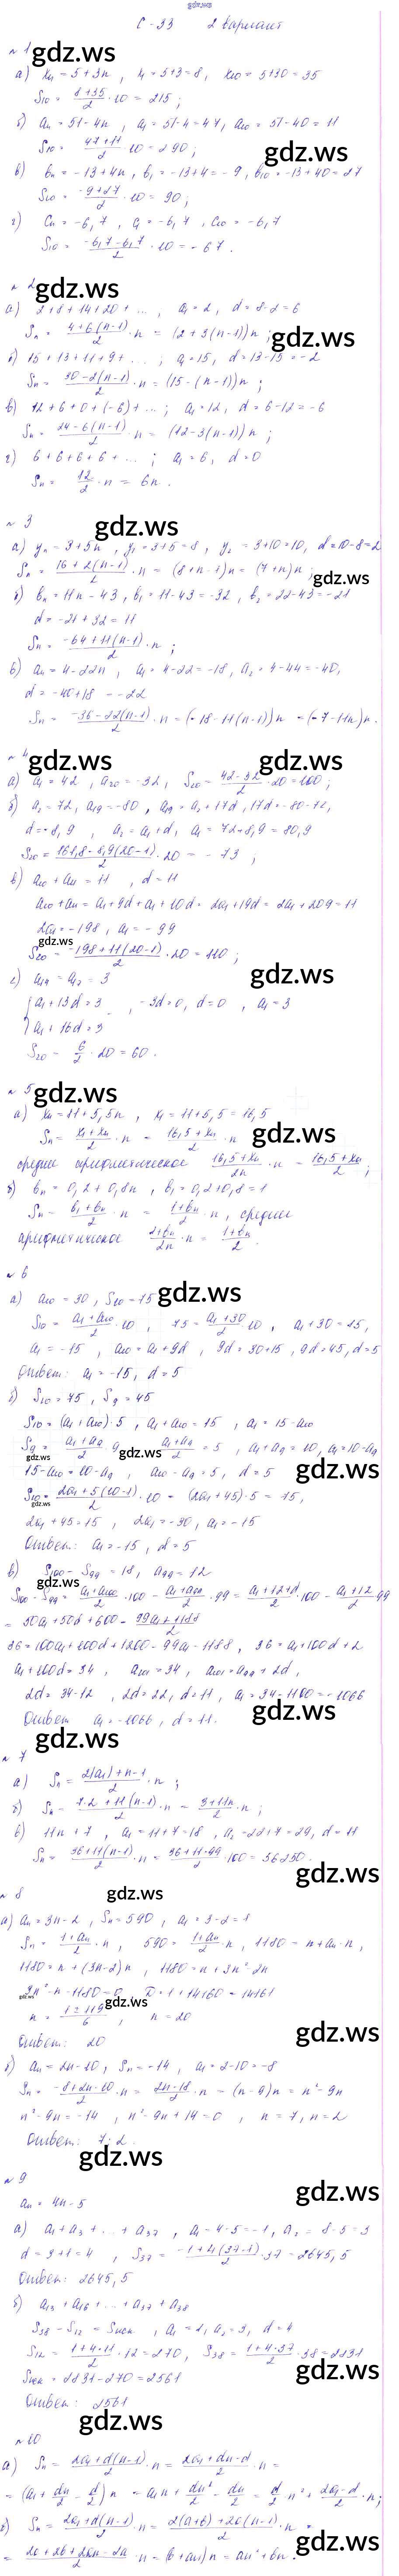 gdz.ws
С-33 2 вариант
№ 1
а) xn = 5+3n, x1 = 5+3=8, x10 = 5+30 = 35
S10 = (8+35)/2 · 10 = 215;
б) an = 51-4n, a1 = 51-4 = 47, a10 = 51-40 = 11
S10 = (47+11)/2 · 10 = 290;
в) bn = -13+4n, b1 = -13+4 = -9, b10 = -13+40 = 27
S10 = (-9+27)/2 · 10 = 90;
г) Cn = -6,7, C1 = -6,7, C10 = -6,7
S10 = (-6,7-6,7)/2 · 10 = -67.
№ 2
а) 2+8+14+20+..., a1 = 2, d = 8-2 = 6
Sn = (4+6(n-1))/2 · n = (2+3(n-1))n;
б) 15+13+11+9+...; a1 = 15, d = 13-15 = -2
Sn = (30-2(n-1))/2 · n = (15-(n-1))n;
в) 12+6+0+(-6)+...; a1 = 12, d = 6-12 = -6
Sn = (24-6(n-1))/2 · n = (12-3(n-1))n;
г) 6+6+6+6+...; a1 = 6, d = 0
Sn = 12/2 · n = 6n.
№ 3
а) yn = 3+5n, y1 = 3+5 = 8, y2 = 3+10 = 10, d = 10-8 = 2
Sn = (16+2(n-1))/2 · n = (8+n-1)n = (7+n)n;
б) bn = 11n-43, b1 = 11-43 = -32, b2 = 22-43 = -21
d = -21+32 = 11
Sn = (-64+11(n-1))/2 · n;
в) an = 4-22n, a1 = 4-22 = -18, a2 = 4-44 = -40,
d = -40+18 = -22
Sn = (-36-22(n-1))/2 · n = (-18-11(n-1))n = (-7-11n)n.
№ 4
а) a1 = 42, a20 = -32, S20 = (42-32)/2 · 20 = 100;
б) a2 = 72, a19 = -80, a19 = a2+17d, 17d = -80-72,
d = -8,9, a2 = a1+d, a1 = 72+8,9 = 80,9
S20 = (161,8-8,9(20-1))/2 · 20 = -73;
в) a10+a11 = 11, d = 11
a10+a11 = a1+9d+a1+10d = 2a1+19d = 2a1+209 = 11
2a1 = -198, a1 = -99
S20 = (-198+11(20-1))/2 · 20 = 110;
г) a14 = a17 = 3
{a1+13d = 3, -3d = 0, d = 0, a1 = 3
a1+16d = 3
S20 = 6/2 · 20 = 60.
№ 5
а) xn = 11+5,5n, x1 = 11+5,5 = 16,5
Sn = (x1+xn)/2 · n = (16,5+xn)/2 · n
среднее арифметическое (16,5+xn)/2n · n = (16,5+xn)/2;
б) bn = 0,2+0,8n, b1 = 0,2+0,8 = 1
Sn = (b1+bn)/2 · n = (1+bn)/2 · n, среднее
арифметическое (1+bn)/2n · n = (1+bn)/2.
№ 6
а) a10 = 30, S10 = 75
S10 = (a1+a10)/2 · 10, 75 = (a1+30)/2 · 10, a1+30 = 15,
a1 = -15, a10 = a1+9d, 9d = 30+15, 9d = 45, d = 5
Ответ: a1 = -15, d = 5
б) S10 = 75, S9 = 45
S10 = (a1+a10)·5, a1+a10 = 15, a1 = 15-a10
S9 = (a1+a9)/2 · 9, (a1+a9)/2 = 5, a1+a9 = 10, a1 = 10-a9
15-a10 = 10-a9, a10-a9 = 5, d = 5
S10 = (2a1+5(10-1))/2 · 10 = (2a1+45)·5 = 75,
2a1+45 = 15, 2a1 = -30, a1 = -15
Ответ: a1 = -15, d = 5
в) S100-S99 = 18, a99 = 12
S100-S99 = (a1+a100)/2 · 100 - (a1+a99)/2 · 99 = (a1+12+d)/2 · 100 - (a1+12)/2 · 99
= 50a1+50d+600 - (99a1+1188)/2
36 = 100a1+100d+1200-99a1-1188, 36 = a1+100d+12
a1+100d = 34, a101 = 34, a101 = a99+2d,
2d = 34-12, 2d = 22, d = 11, a1 = 34-1100 = -1066
Ответ a1 = -1066, d = 11.
№ 7
а) Sn = (2(a1)+n-1)/2 · n;
б) Sn = (7·2+11(n-1))/2 · n = (3+11n)/2 · n;
в) 11n+7, a1 = 11+7 = 18, a2 = 22+7 = 29, d = 11
Sn = (36+11(n-1))/2 · n = (36+11·99)/2 · 100 = 56250.
№ 8
а) an = 3n-2, Sn = 590, a1 = 3-2 = 1
Sn = (1+an)/2 · n, 590 = (1+an)/2 · n, 1180 = n+an·n,
1180 = n+(3n-2)n, 1180 = n+3n²-2n
3n²-n-1180 = 0, D = 1+14160 = 14161
n = (1±119)/6, n = 20
Ответ: 20
б) an = 2n-10, Sn = -14, a1 = 2-10 = -8
Sn = (-8+2n-10)/2 · n = (2n-18)/2 · n = (n-9)n = n²-9n
n²-9n = -14, n²-9n+14 = 0, n = 7, n = 2
Ответ: 7; 2.
№ 9
an = 4n-5
а) a1+a3+...+a37, a1 = 4-5 = -1, a2 = 8-5 = 3
d = 3+1 = 4, S37 = (-1+4(37-1))/2 · 37 = 2645,5
Ответ: 2645,5
б) a13+a16+...+a37+a38
S38-S12 = Sиск, a1 = 1, a2 = 3, d = 4
S12 = (1+4·11)/2 · 12 = 270, S38 = (1+4·37)/2 · 38 = 2831
Sиск = 2831-270 = 2561
Ответ: 2561
№ 10
а) Sn = (2a1+d(n-1))/2 · n = (2a1+dn-d)/2 · n =
= (a1 + dn/2 - d/2)n = a1n + dn²/2 - dn/2 = d/2 · n² + (2a1-d)/2 · n;
б) Sn = (2a1+d(n-1))/2 · n = (2(a+b)+2a(n-1))/2 · n =
= (2a+2b+2an-2a)/2 · n = (b+an)n = an²+bn.